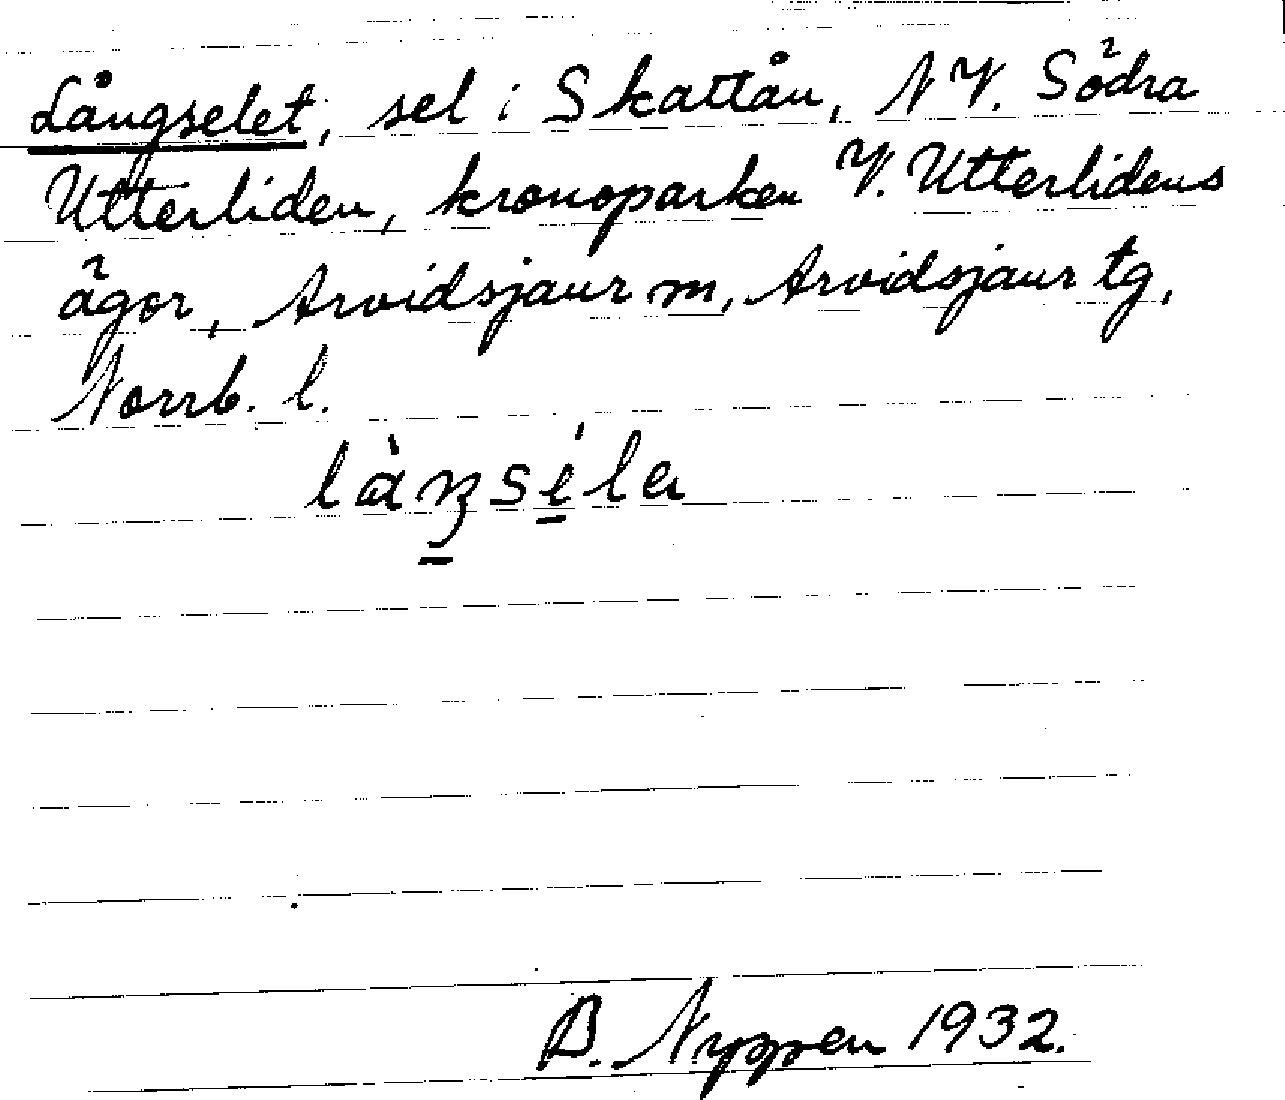 Långselet, sel i Skattån, NV. Södra
Utterliden, kronoparken V. Utterlidens
ägor, Arvidsjaur m, Arvidsjaur tg,
Norrb. l.
B. Nyppen 1932.